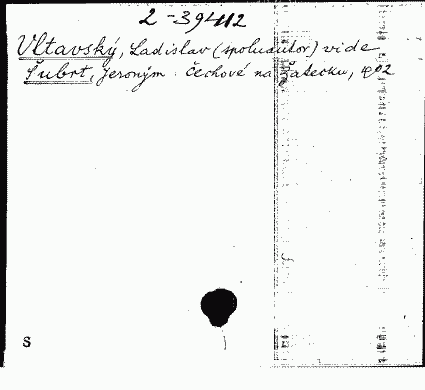 2-39412
Vltavský, Ladislav (spoluautor) vide
Šubrt, Jeroným : Čechové na Žatecku, 902
S